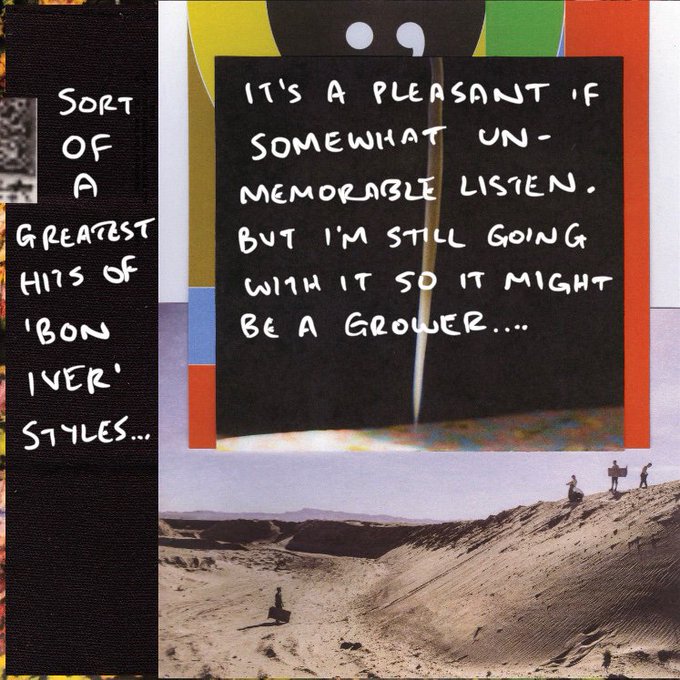 SORT
OF
A
GREATEST
HITS OF
'BON
IVER'
STYLES...
IT'S A PLEASANT IF
SOMEWHAT UN-
MEMORABLE LISTEN.
BUT I'M STILL GOING
WITH IT SO IT MIGHT
BE A GROWER....